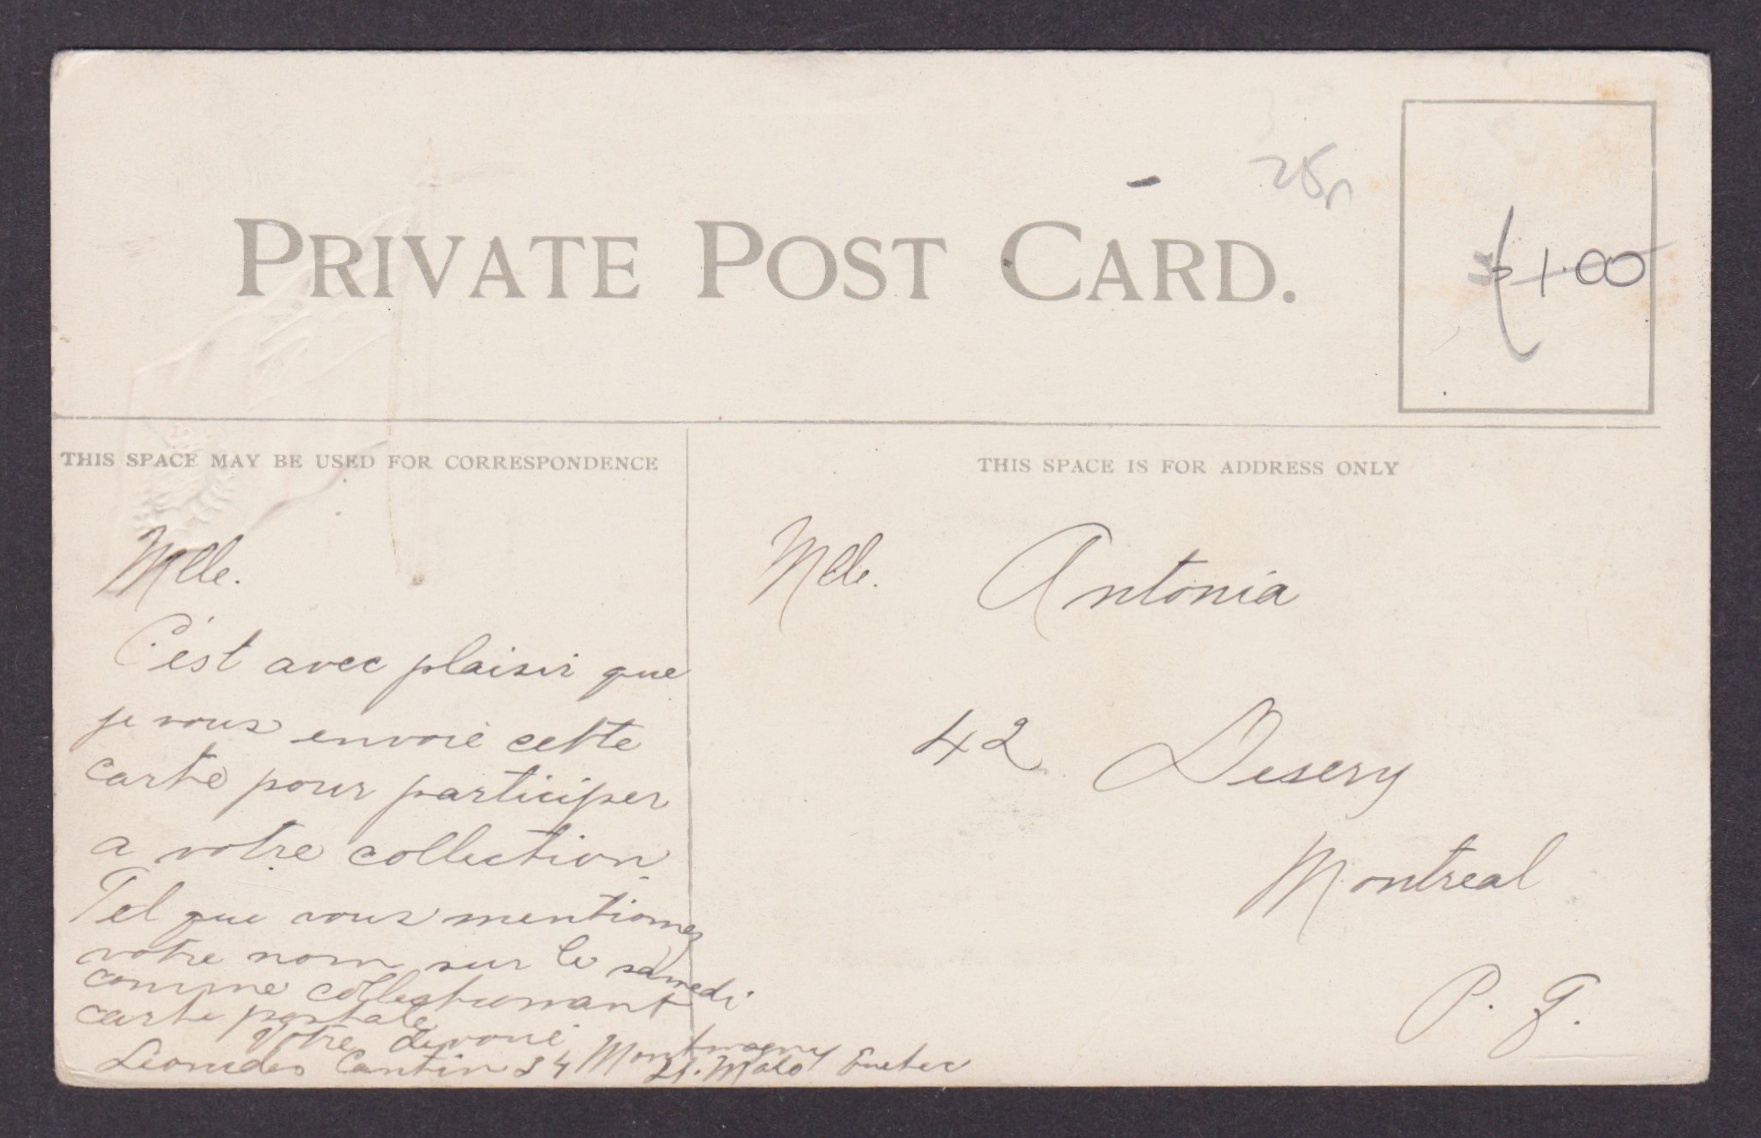 28
PRIVATE POST CARD.
1.00
THIS SPACE MAY BE USED FOR CORRESPONDENCE
THIS SPACE IS FOR ADDRESS ONLY
Mlle.
C'est avec plaisir que
je vous envoie cette
carte pour participer
a votre collection.
Tel que vous mentionnez
votre nom sur le samedi
comme collectionnant
carte postale
Votre dévoué
Leonidas Cantin 34 Montmagny
St. Malo Quebec
Mlle. Antonia
42 Desery
Montreal
P. Q.